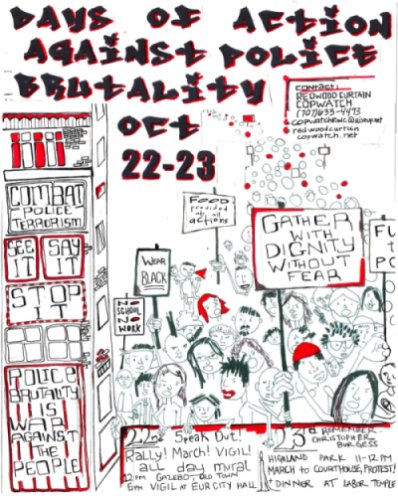 DAYS OF ACTION
AGAINST POLICE
BRUTALITY
OCT
22-23
contact:
REDWOOD CURTAIN
COPWATCH
(707)633-4493
redwoodcurtain
copwatch.net
COMBAT
POLICE
TERRORISM
SEE IT
SAY IT
STOP
IT
POLICE
BRUTALITY
IS
WAR
AGAINST
THE
PEOPLE
FOOD
provided
at all
actions
WEAR
BLACK
NO
SCHOOL
NO
WORK
GATHER
WITH
DIGNITY
WITHOUT
FEAR
FU
PO
22nd Speak Out!
Rally! March! VIGIL!
all day mural
12 PM GAZEBO, OLD TOWN
6pm VIGIL AT EUR CITY HALL
23rd REMEMBER
CHRISTOPHER
BURGESS
HIGHLAND PARK 11-12PM
MARCH to COURTHOUSE, PROTEST!
+ DINNER AT LABOR TEMPLE